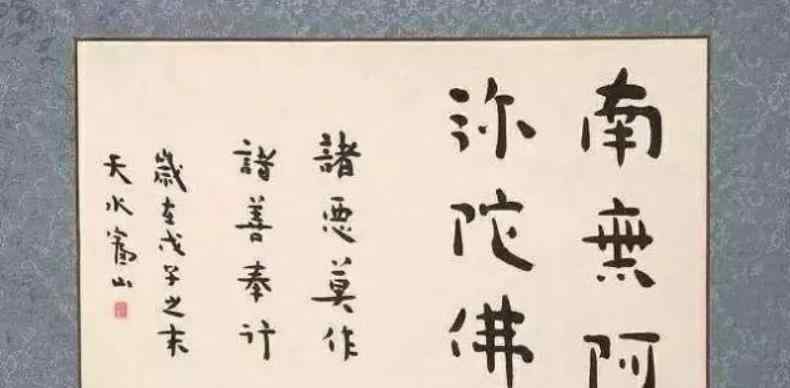 南無阿
弥陀佛
諸惡莫作
諸善奉行
歲在戊子之末
天水山